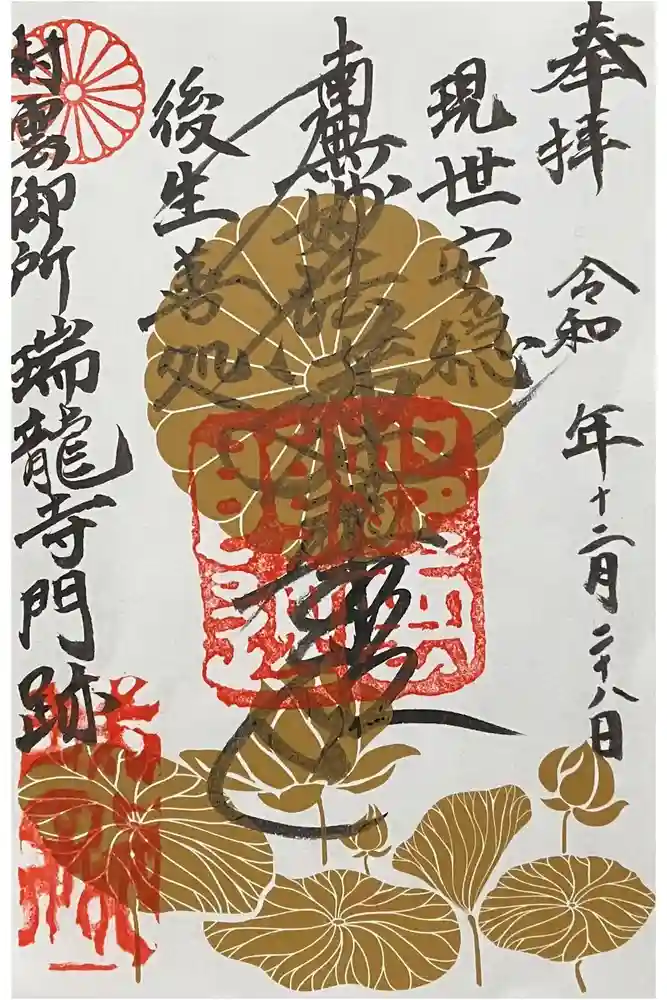 奉拝
令和 年十二月二十八日
現世安穏
南無妙法蓮華経
後生善処
村雲御所瑞龍寺門跡